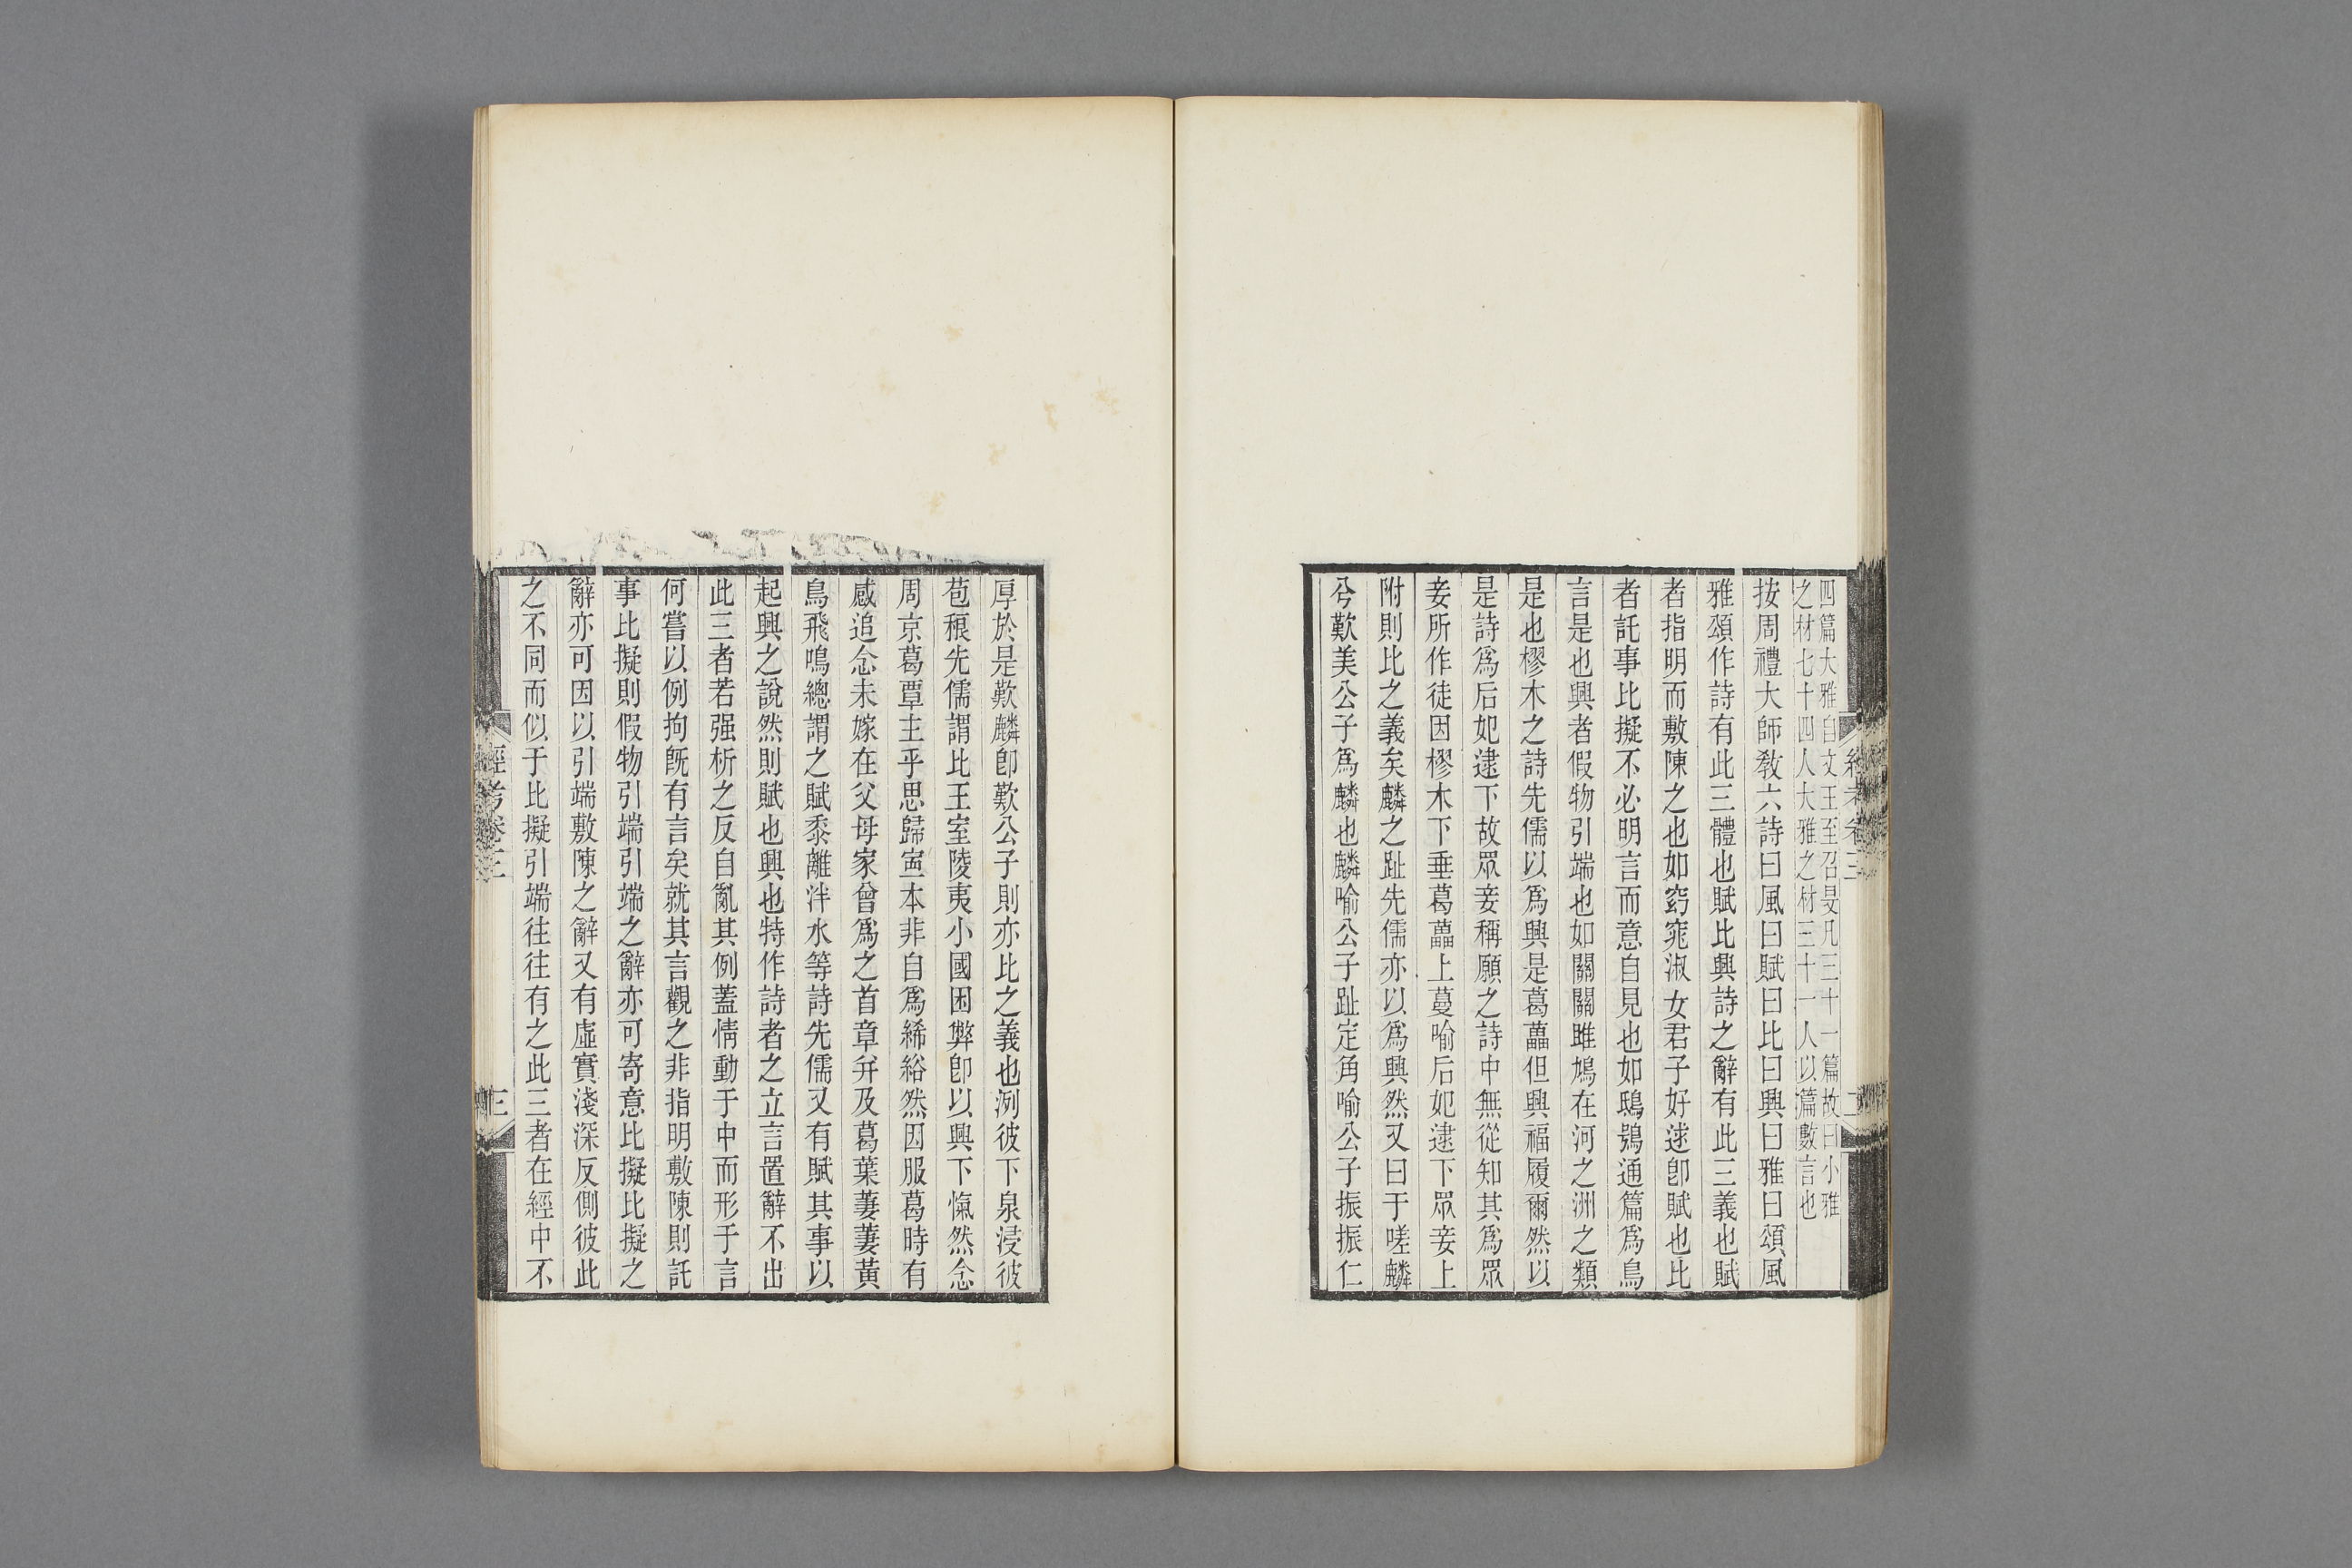 四篇大雅自文王至召旻凡三十一篇故曰小雅
之材七十四人大雅之材三十一人以篇數言也
按周禮大師敎六詩曰風曰賦曰比曰興曰雅曰頌風
雅頌作詩有此三體也賦比興詩之辭有此三義也賦
者指明而敷陳之也如窈窕淑女君子好逑卽賦也比
者託事比擬不必明言而意自見也如鴟鴞通篇爲鳥
言是也興者假物引端也如關關雎鳩在河之洲之類
是也樛木之詩先儒以爲興是葛藟但興福履爾然以
是詩爲后妃逮下故眾妾稱願之詩中無從知其爲眾
妾所作徒因樛木下垂葛藟上蔓喻后妃逮下眾妾上
附則比之義矣麟之趾先儒亦以爲興然又曰于嗟麟
兮歎美公子爲麟也麟喻公子趾定角喻公子振振仁
厚於是歎麟卽歎公子則亦比之義也洌彼下泉浸彼
苞稂先儒謂比王室陵夷小國困弊卽以興下愾然念
周京葛覃主乎思歸寍本非自爲絺綌然因服葛時有
感追念未嫁在父母家曾爲之首章幷及葛葉萋萋黃
鳥飛鳴總謂之賦黍離泮水等詩先儒又有賦其事以
起興之說然則賦也興也特作詩者之立言置辭不出
此三者若强析之反自亂其例蓋情動于中而形于言
何嘗以例拘旣有言矣就其言觀之非指明敷陳則託
事比擬則假物引端引端之辭亦可寄意比擬比擬之
辭亦可因以引端敷陳之辭又有虛實淺深反側彼此
之不同而似于比擬引端往往有之此三者在經中不
經考卷三
三